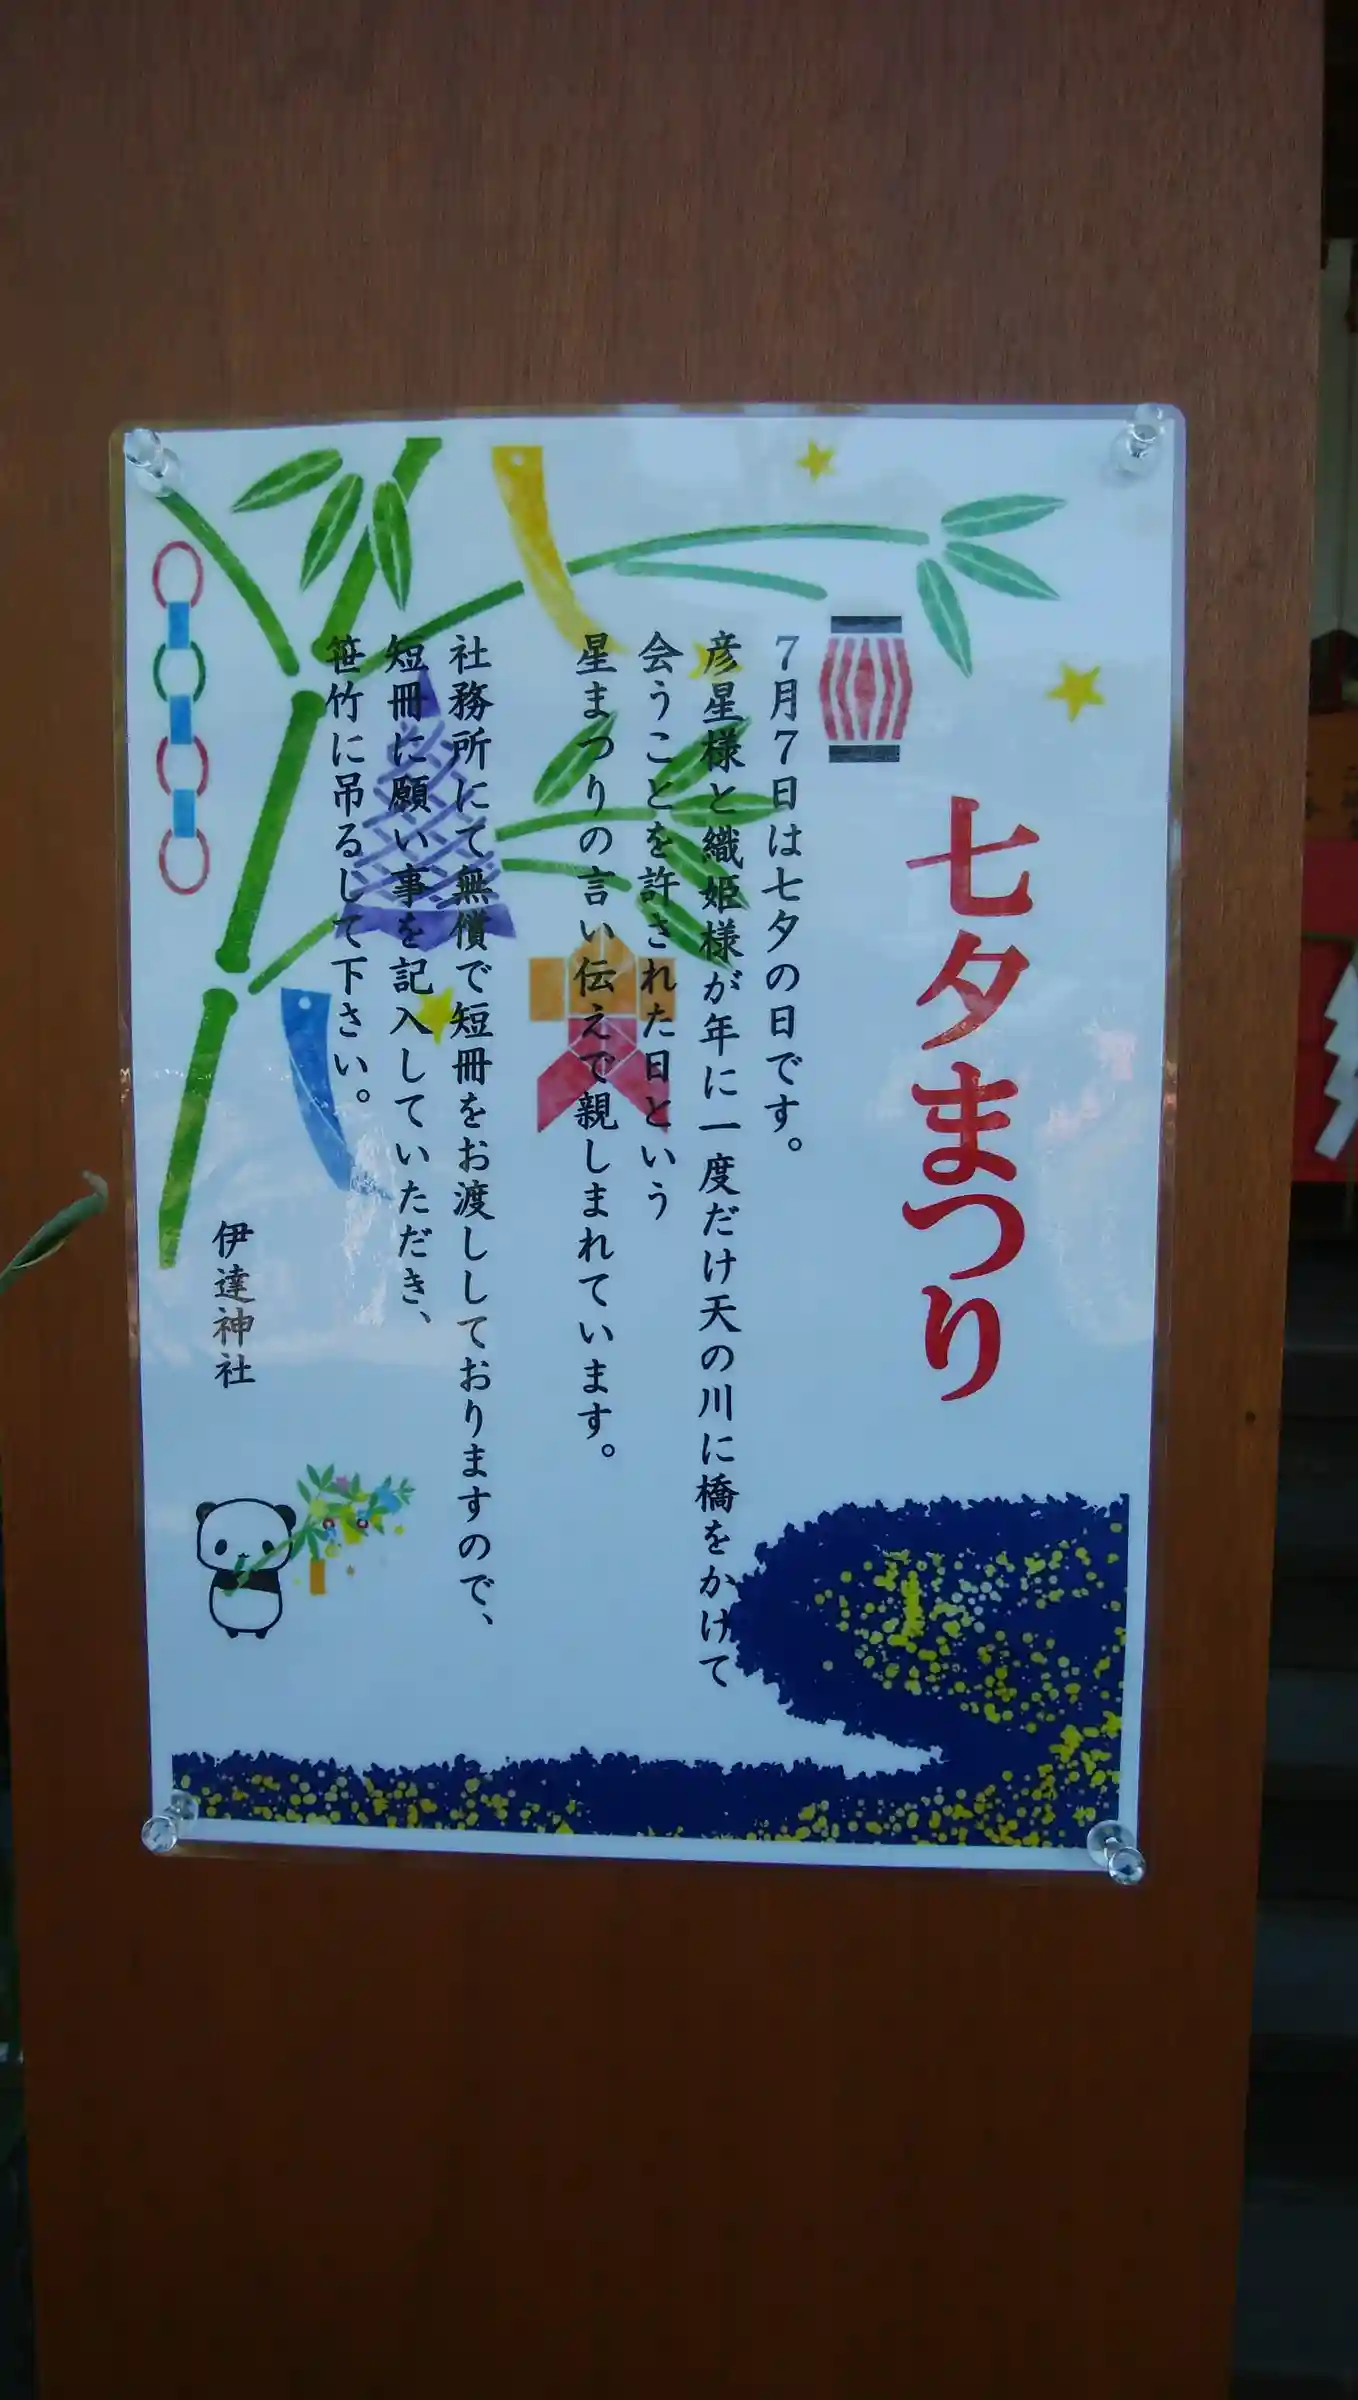 七夕まつり
7月7日は七夕の日です。
彦星様と織姫様が年に一度だけ天の川に橋をかけて
会うことを許された日という
星まつりの言い伝えで親しまれています。
社務所にて無償で短冊をお渡ししておりますので、
短冊に願い事を記入していただき、
笹竹に吊るして下さい。
伊達神社